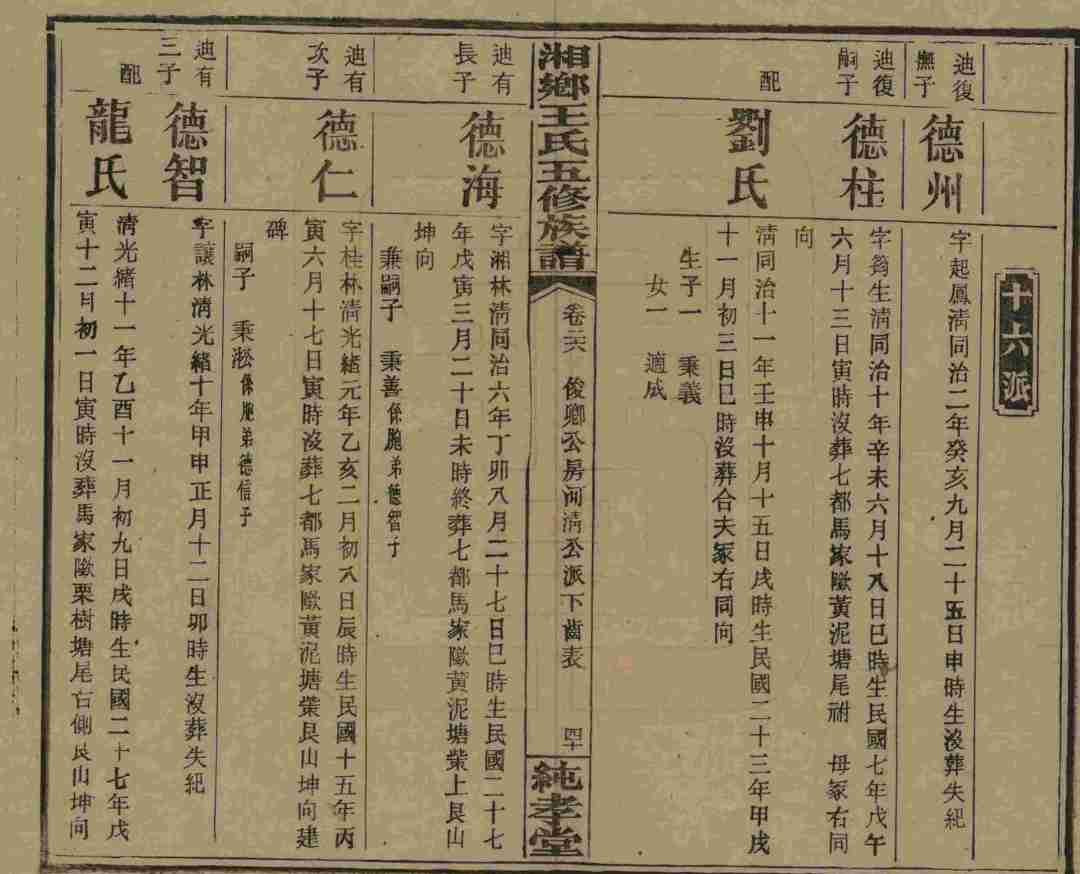 十六派
迪復
撫子
德州
字起鳳清同治二年癸亥九月二十五日申時生沒葬失紀
迪復
嗣子
德柱
字筠生清同治十年辛未六月十八日巳時生民國七年戊午
六月十三日寅時沒葬七都馬家隞黃泥塘尾祔 母冢右同
向
配
劉氏
清同治十一年壬申十月十五日戌時生民國二十三年甲戌
十一月初三日巳時沒葬合夫冢右同向
生子一 秉義
女一 適成
湘鄉王氏五修族譜
卷二六 俊卿公房河清公派下齒表
四十
純孝堂
迪有
長子
德海
字湘林清同治六年丁卯八月二十七日巳時生民國二十七
年戊寅三月二十日未時終葬七都馬家隞黃泥塘柴上艮山
坤向
兼嗣子 秉善係胞弟德智子
迪有
次子
德仁
字桂林清光緒元年乙亥二月初八日辰時生民國十五年丙
寅六月十七日寅時沒葬七都馬家隞黃泥塘柴艮山坤向建
碑
嗣子 秉淞係胞弟德信子
迪有
三子
德智
字讓林清光緒十年甲申正月十二日卯時生沒葬失紀
配
龍氏
清光緒十一年乙酉十一月初九日戌時生民國二十七年戊
寅十二月初一日寅時沒葬馬家隞栗樹塘尾右側艮山坤向